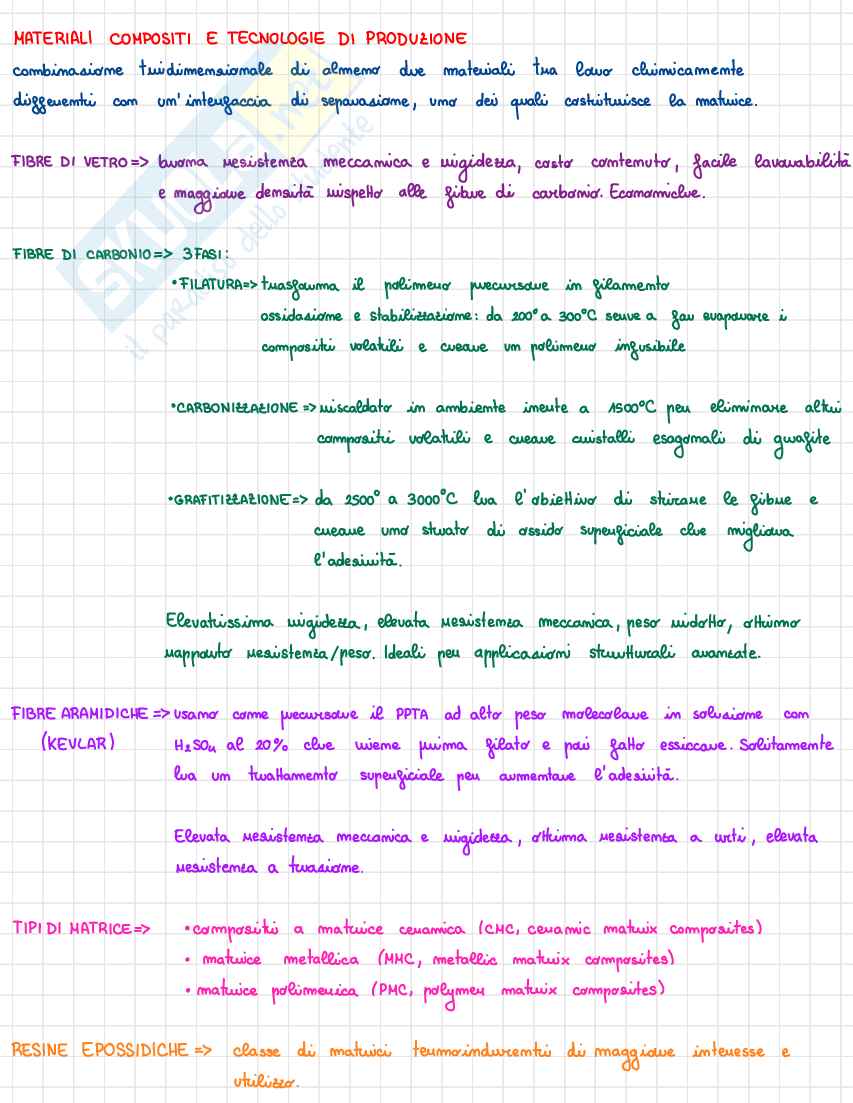 MATERIALI COMPOSITI E TECNOLOGIE DI PRODUZIONE
combinazione tridimensionale di almeno due materiali tra loro chimicamente
differenti con un'interfaccia di separazione, uno dei quali costituisce la matrice.
FIBRE DI VETRO => buona resistenza meccanica e rigidezza, costo contenuto, facile lavorabilità
e maggiore densità rispetto alle fibre di carbonio. Economiche.
FIBRE DI CARBONIO => 3 FASI:
• FILATURA => trasforma il polimero precursore in filamento
ossidazione e stabilizzazione: da 200° a 300°C serve a far evaporare i
compositi volatili e creare un polimero infusibile
• CARBONIZZAZIONE => riscaldato in ambiente inerte a 1500°C per eliminare altri
compositi volatili e creare cristalli esagonali di grafite
• GRAFITIZZAZIONE => da 2500° a 3000°C ha l'obiettivo di stirare le fibre e
creare uno strato di ossido superficiale che migliora
l'adesività.
Elevatissima rigidezza, elevata resistenza meccanica, peso ridotto, ottimo
rapporto resistenza/peso. Ideali per applicazioni strutturali avanzate.
FIBRE ARAMIDICHE => usano come precursore il PPTA ad alto peso molecolare in soluzione con
(KEVLAR) H₂SO₄ al 20% che viene prima filato e poi fatto essiccare. Solitamente
ha un trattamento superficiale per aumentare l'adesività.
Elevata resistenza meccanica e rigidezza, ottima resistenza a urti, elevata
resistenza a trazione.
TIPI DI MATRICE => • compositi a matrice ceramica (CMC, ceramic matrix composites)
• matrice metallica (MMC, metallic matrix composites)
• matrice polimerica (PMC, polymer matrix composites)
RESINE EPOSSIDICHE => classe di matrici termoindurenti di maggiore interesse e
utilizzo.
SKUOLA.net
il paradiso dello studente